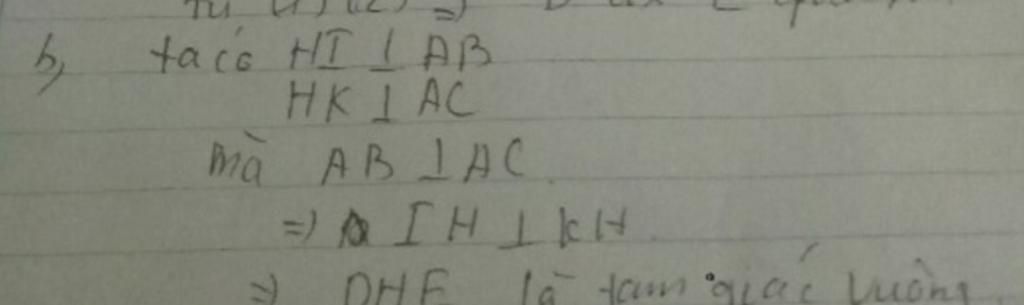 từ (1) (2) =>
b, ta có HI ⊥ AB
HK ⊥ AC
mà AB ⊥ AC.
=> IH ⊥ KH.
=> DHE là tam giác vuông.